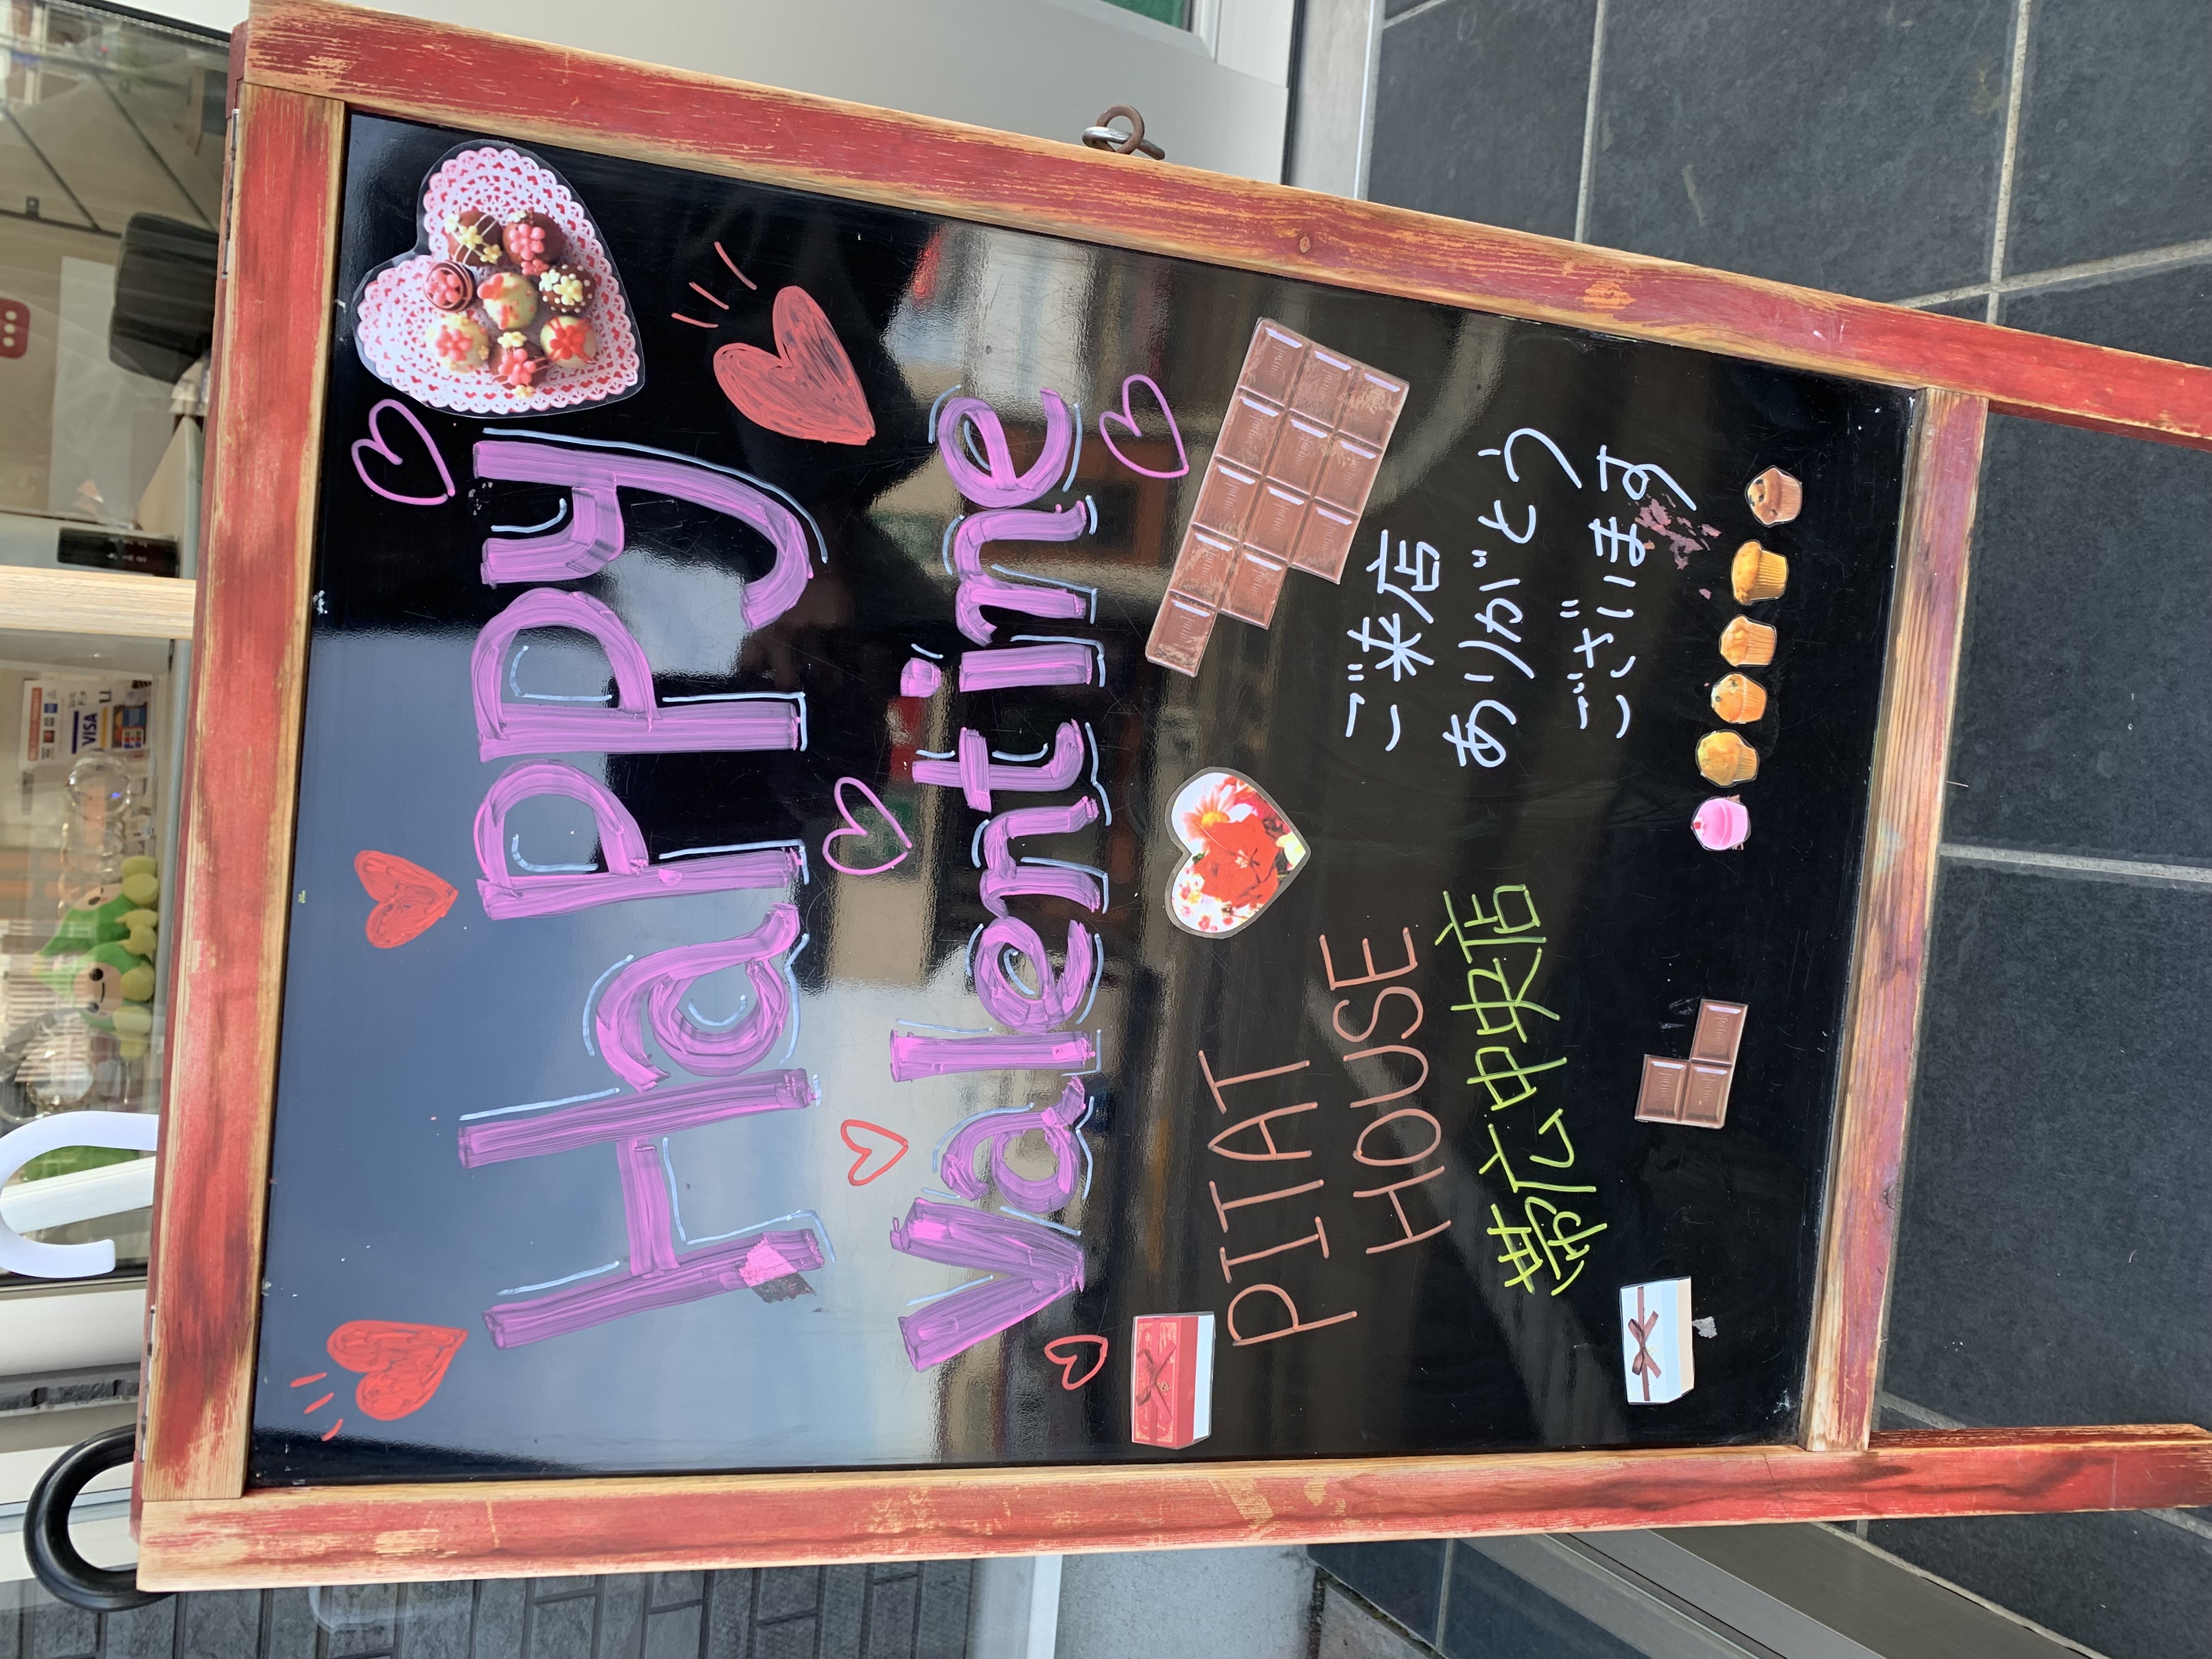 Happy
Valentine
PITAT
HOUSE
帯広中央店
ご来店
ありがとう
ございます
VISA